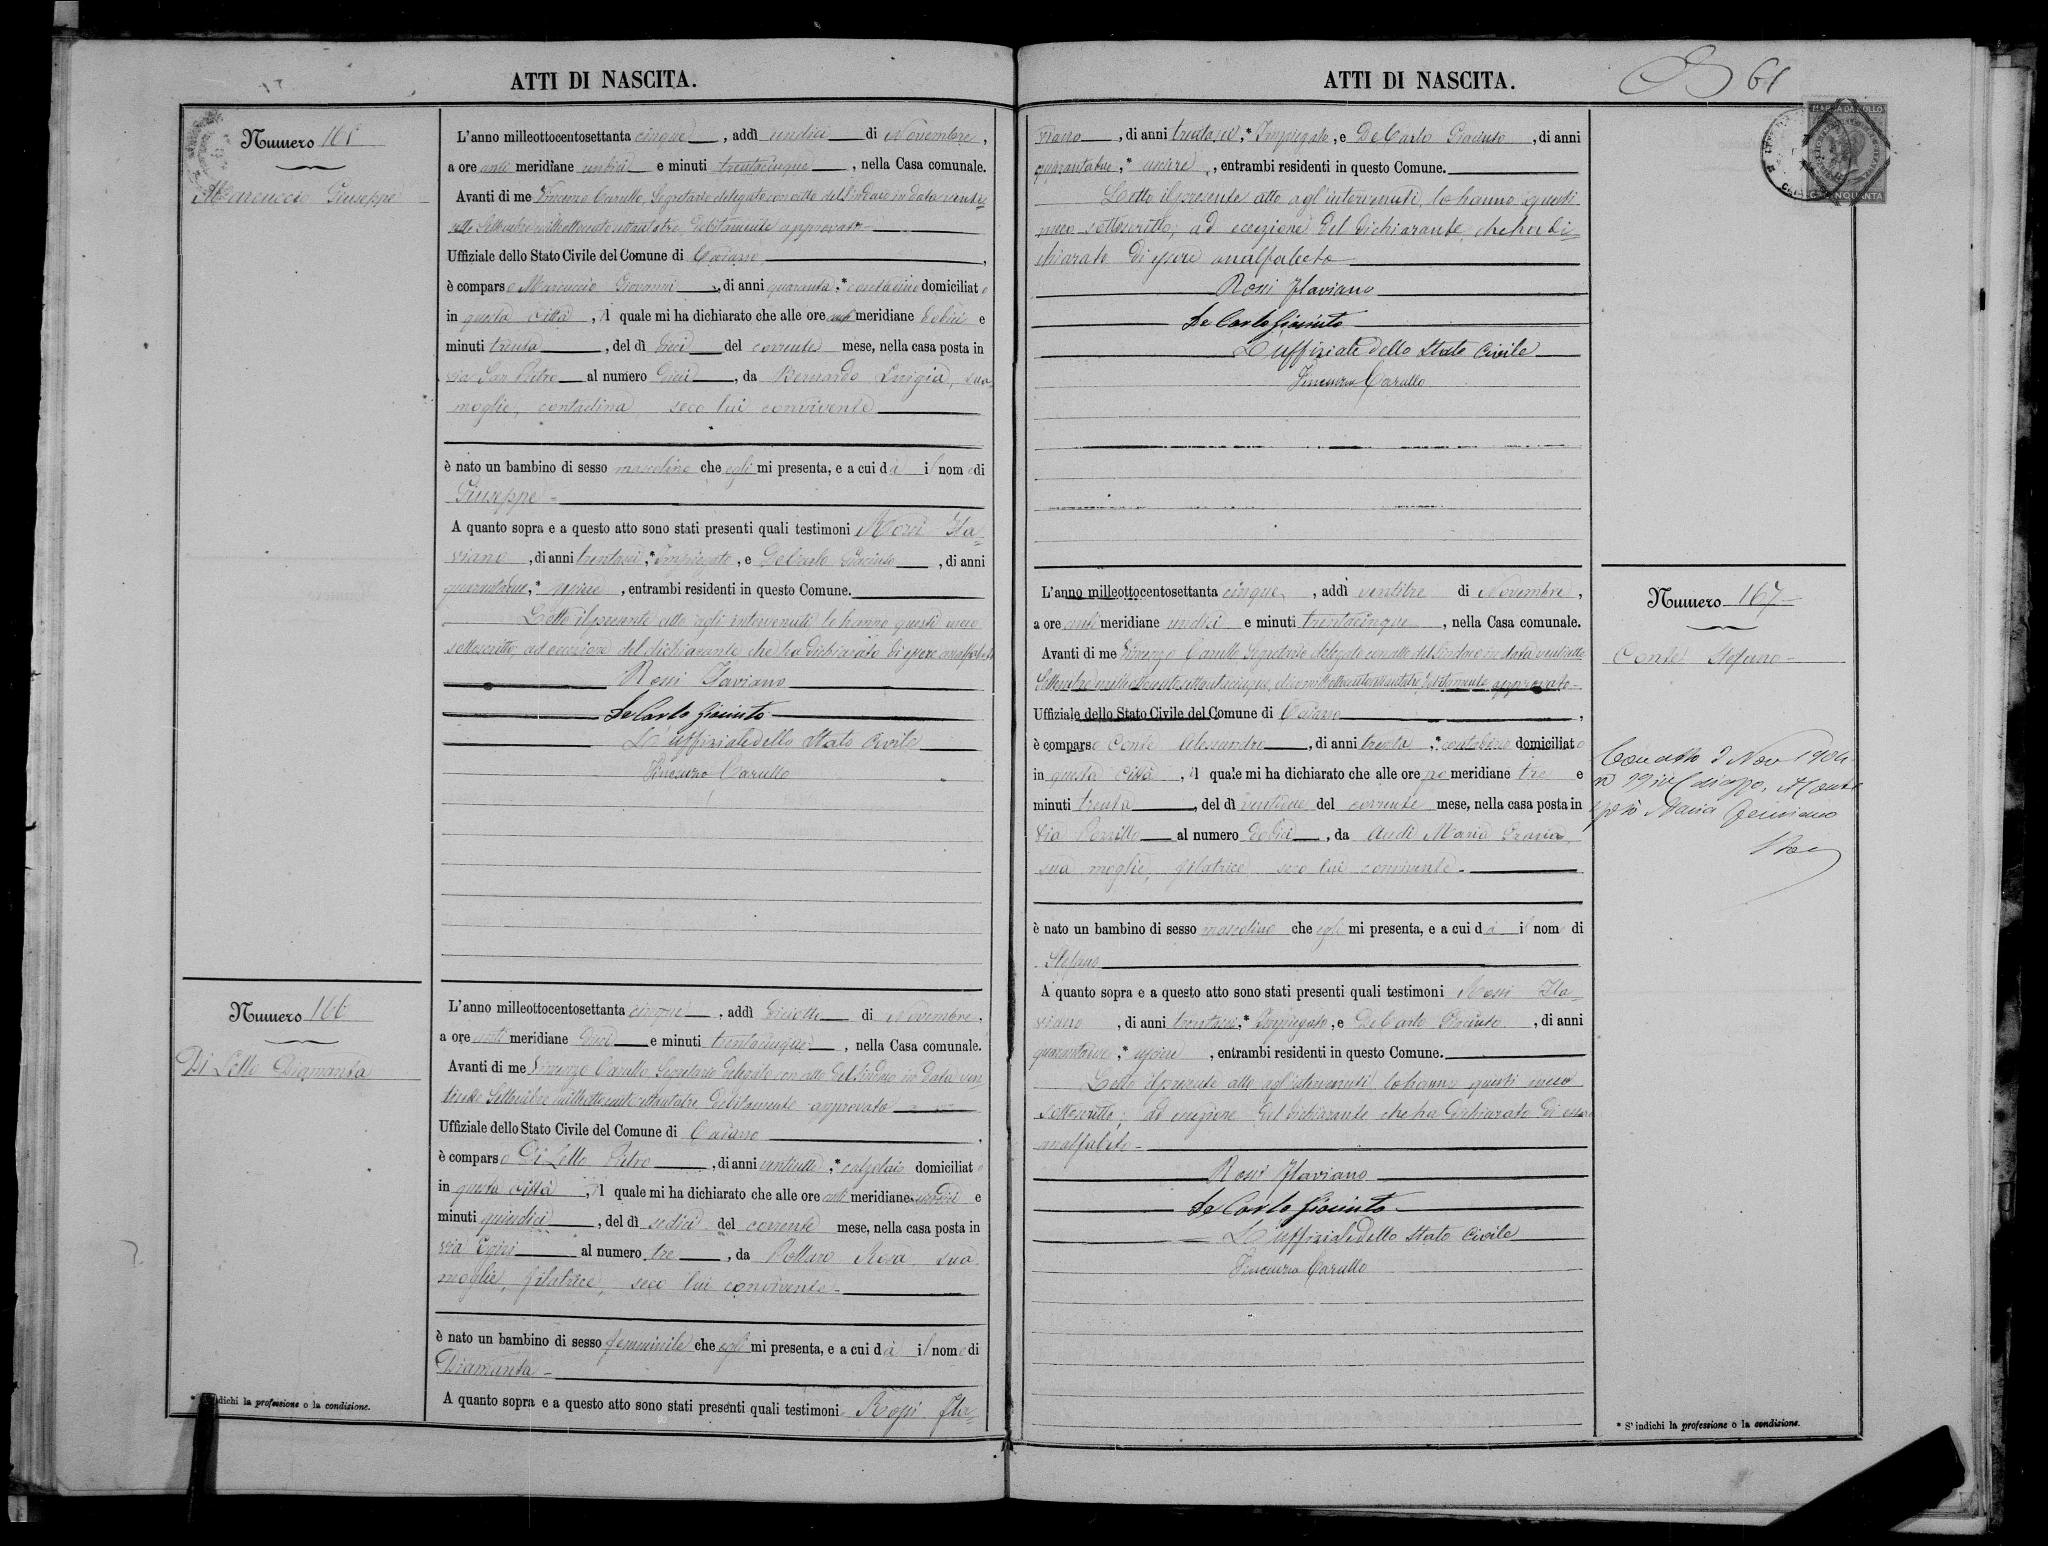 ATTI DI NASCITA.
Numero 165
Marcuccio Giuseppe
L'anno milleottocentosettanta cinque, addì undici di Novembre,
a ore anti meridiane undici e minuti trentacinque, nella Casa comunale.
Avanti di me Vincenzo Carullo, Segretario delegato con atto del Sindaco in data venti-
sette Settembre milleottocento settantatre, debitamente approvato
Uffiziale dello Stato Civile del Comune di Caiazzo,
è comparso Marcuccio Giovanni, di anni quaranta,* contadino domiciliato
in questa città, il quale mi ha dichiarato che alle ore anti meridiane dodici e
minuti trenta, del dì dieci del corrente mese, nella casa posta in
via San Pietro al numero dieci, da Bernardo Luigia, sua
moglie, contadina, seco lui convivente
è nato un bambino di sesso mascolino che egli mi presenta, e a cui dà il nome di
Giuseppe
A quanto sopra e a questo atto sono stati presenti quali testimoni Rossi Fla-
viano, di anni trentasei,* Impiegato, e De Carlo Giacinto, di anni
quarantadue,* usciere, entrambi residenti in questo Comune.
Letto il presente atto agli intervenuti lo hanno questi meco
sottoscritto, ad eccezione del dichiarante che ha dichiarato di essere analfabeto
Rossi Flaviano
De Carlo Giacinto
L'uffiziale dello Stato Civile
Vincenzo Carullo
Numero 166
Di Lello Diamanta
L'anno milleottocentosettanta cinque, addì diciotto di Novembre,
a ore anti meridiane dieci e minuti trentacinque, nella Casa comunale.
Avanti di me Vincenzo Carullo Segretario delegato con atto del Sindaco in data ven-
tisette Settembre milleottocento settantatre, debitamente approvato
Uffiziale dello Stato Civile del Comune di Caiazzo,
è comparso Di Lello Pietro, di anni ventisette,* calzolaio domiciliato
in questa città, il quale mi ha dichiarato che alle ore anti meridiane undici e
minuti quindici, del dì sedici del corrente mese, nella casa posta in
via al numero tre, da Rosa, sua
moglie, filatrice, seco lui convivente
è nato un bambino di sesso femminile che egli mi presenta, e a cui dà il nome di
Diamanta
A quanto sopra e a questo atto sono stati presenti quali testimoni Rossi Fla-
* S'indichi la professione o la condizione.
ATTI DI NASCITA.
61
MARCA DA BOLLO
CINQUANTA
viano, di anni trentasei,* Impiegato, e De Carlo Giacinto, di anni
quarantadue,* usciere, entrambi residenti in questo Comune.
Letto il presente atto agl'intervenuti, lo hanno questi
meco sottoscritto, ad eccezione del dichiarante, che ha di-
chiarato di essere analfabeto
Rossi Flaviano
De Carlo Giacinto
L'uffiziale dello Stato Civile
Vincenzo Carullo
Numero 167
Conte Stefano
L'anno milleottocentosettanta cinque, addì ventitre di Novembre,
a ore anti meridiane undici e minuti trentacinque, nella Casa comunale.
Avanti di me Vincenzo Carullo Segretario delegato con atto del Sindaco in data ventisette
Settembre debitamente approvato
Uffiziale dello Stato Civile del Comune di Caiazzo,
è comparso Conte Alessandro, di anni trenta,* contadino domiciliato
in questa città, il quale mi ha dichiarato che alle ore po meridiane tre e
minuti trenta, del dì ventidue del corrente mese, nella casa posta in
via al numero dodici, da Maria Grazia,
sua moglie, filatrice seco lui convivente
è nato un bambino di sesso mascolino che egli mi presenta, e a cui dà il nome di
Stefano
A quanto sopra e a questo atto sono stati presenti quali testimoni Rossi Fla-
viano, di anni trentasei,* Impiegato, e De Carlo Giacinto, di anni
quarantadue,* usciere, entrambi residenti in questo Comune.
Letto il presente atto agl'intervenuti lo hanno questi meco
sottoscritto, ad eccezione del dichiarante che ha dichiarato di essere
analfabeto
Rossi Flaviano
De Carlo Giacinto
L'uffiziale dello Stato Civile
Vincenzo Carullo
Nov 1904
Conte
sposò Maria
* S'indichi la professione o la condizione.